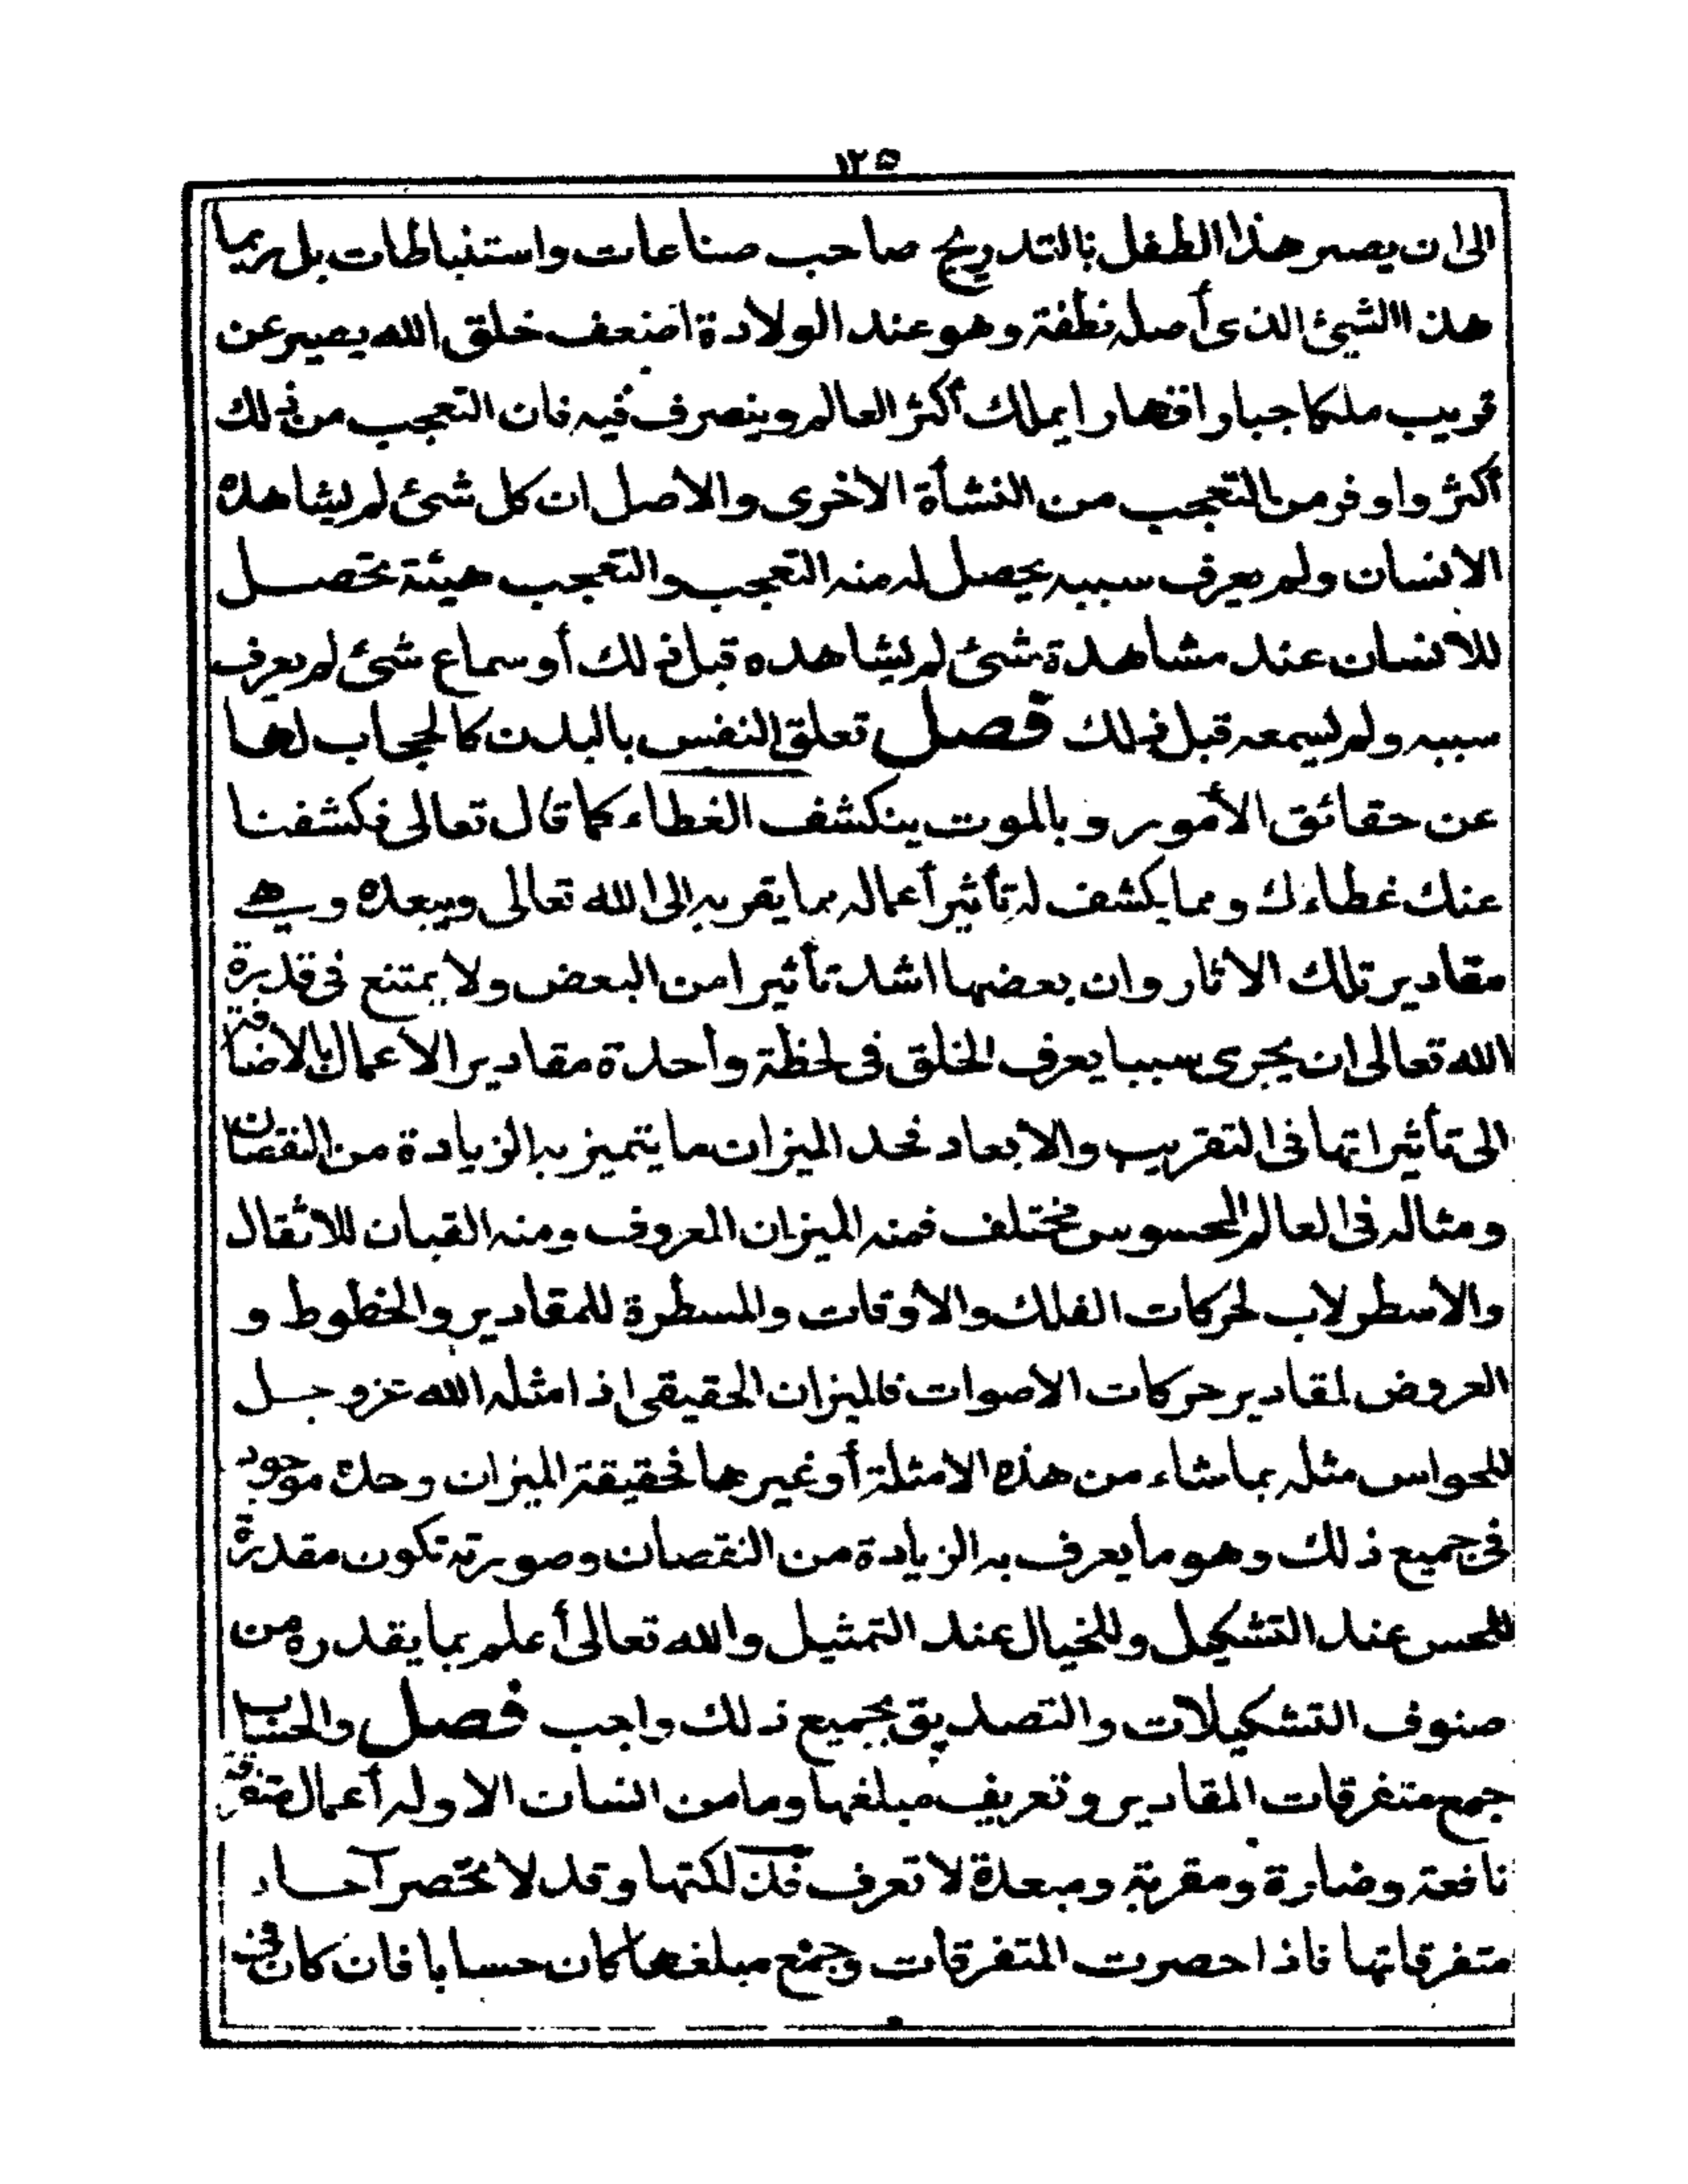 ١٢٥
الى ان يصير هذا الطفل بالتدريج صاحب صناعات واستنباطات بل ربما
هذا الشيئ الذى أصله نطفة وهو عند الولادة اضعف خلق الله يصير عن
قريب ملكا جبارا قهارا يملك أكثر العالم ويتصرف فيه فان التعجب من ذلك
أكثر واوفر من التعجب من النشأة الاخرى والاصل ان كل شئ لم يشاهده
الانسان ولم يعرف سببه يحصل له منه التعجب والتعجب هيئة تحصل
للانسان عند مشاهدة شئ لم يشاهده قبل ذلك أو سماع شئ لم يعرف
سببه ولم يسمعه قبل ذلك فصل تعلق النفس بالبدن كالحجاب لها
عن حقائق الأمور وبالموت ينكشف الغطاء كما قال تعالى فكشفنا
عنك غطاءك ومما يكشف له تأثير أعماله بما يقربه إلى الله تعالى ويبعده وهي
مقادير تلك الاثار وان بعضها اشد تأثيرا من البعض ولا يمتنع فى قدرة
الله تعالى ان يجرى سببا يعرف الخلق فى لحظة واحدة مقادير الاعمال بالاضافة
الى تأثيراتها فى التقريب والابعاد فحد الميزان ما يتميز به الزيادة من النقصان
ومثاله فى العالم المحسوس مختلف فمنه الميزان المعروف ومنه القبان للاثقال
والاسطرلاب لحركات الفلك والاوقات والمسطرة للمقادير والخطوط و
العروض لمقادير حركات الاصوات فالميزان الحقيقى اذا مثله الله عزوجل
للحواس مثله بما شاء من هذه الامثلة أو غيرها فحقيقة الميزان وحده موجود
فى جميع ذلك وهو ما يعرف به الزيادة من النقصان وصورته تكون مقدرة
للحس عند التشكيل وللخيال عند التمثيل والله تعالى أعلم بما يقدره من
صنوف التشكيلات والتصديق بجميع ذلك واجب فصل والحساب
جمع متفرقات المقادير وتعريف مبلغها وما من انسان الا وله أعمال متفرقة
نافعة وضارة ومقربة ومبعدة لا تعرف فذلكتها وقد لا تحصر آحاد
متفرقاتها فاذا حصرت المتفرقات وجمع مبلغها كان حسابا فان كان فى